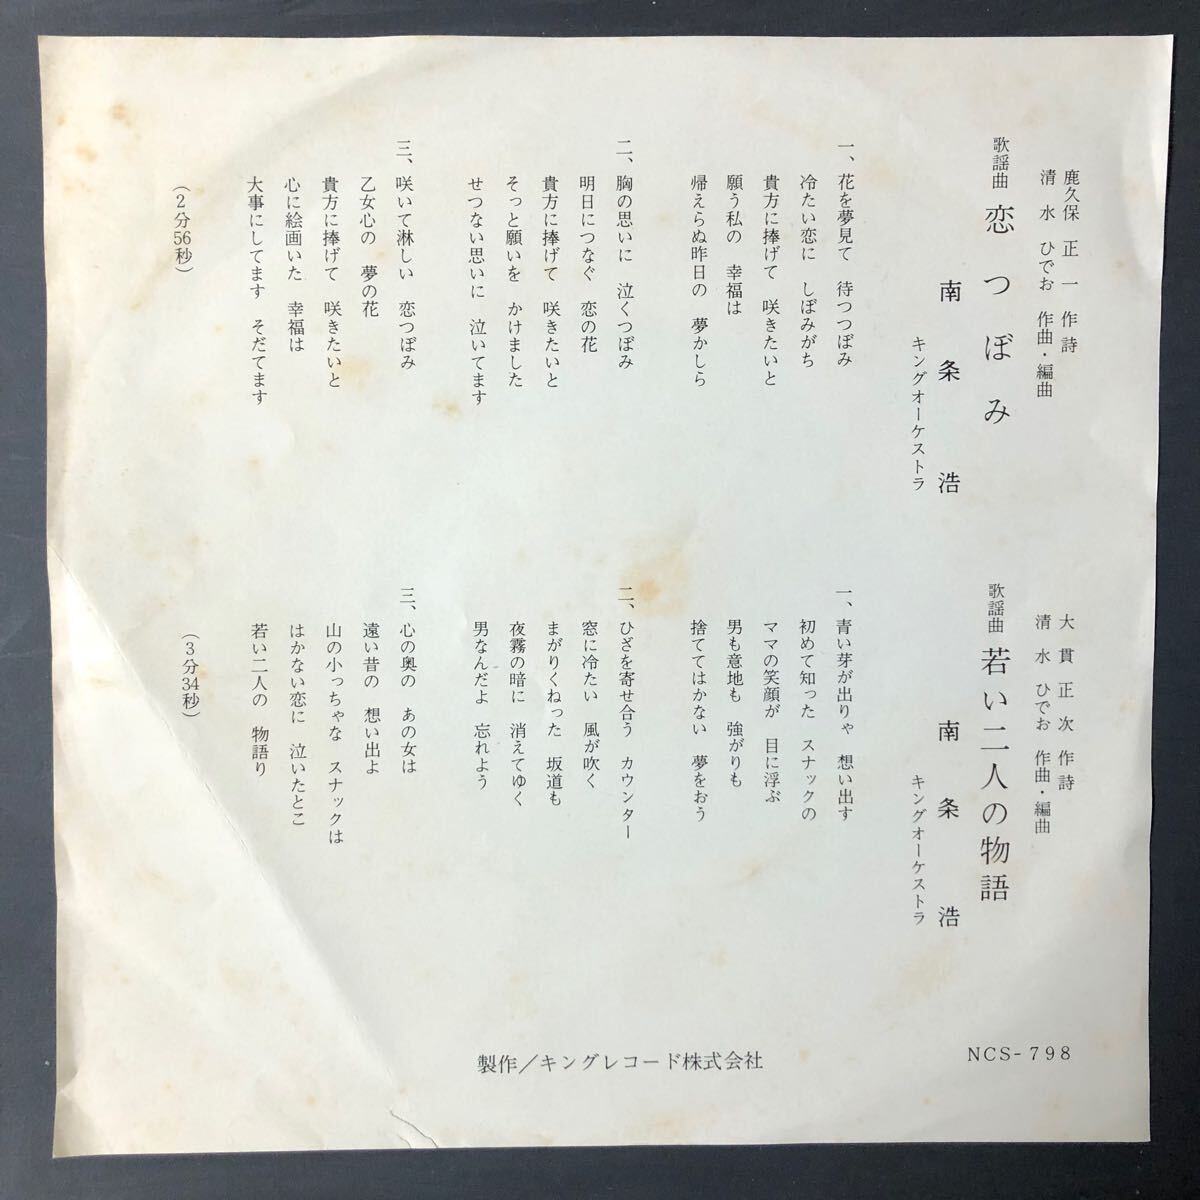 鹿久保 正一 作詩
清水 ひでお 作曲・編曲
歌謡曲 恋つぼみ
南条 浩
キングオーケストラ
一、花を夢見て 待つつぼみ
冷たい恋に しぼみがち
貴方に捧げて 咲きたいと
願う私の 幸福は
帰えらぬ昨日の 夢かしら
二、胸の思いに 泣くつぼみ
明日につなぐ 恋の花
貴方に捧げて 咲きたいと
そっと願いを かけました
せつない思いに 泣いてます
三、咲いて淋しい 恋つぼみ
乙女心の 夢の花
貴方に捧げて 咲きたいと
心に絵画いた 幸福は
大事にしてます そだてます
(2分56秒)
大貫 正次 作詩
清水 ひでお 作曲・編曲
歌謡曲 若い二人の物語
南条 浩
キングオーケストラ
一、青い芽が出りゃ 想い出す
初めて知った スナックの
ママの笑顔が 目に浮ぶ
男も意地も 強がりも
捨ててはかない 夢をおう
二、ひざを寄せ合う カウンター
窓に冷たい 風が吹く
まがりくねった 坂道も
夜霧の暗に 消えてゆく
男なんだよ 忘れよう
三、心の奥の あの女は
遠い昔の 想い出よ
山の小っちゃな スナックは
はかない恋に 泣いたとこ
若い二人の 物語り
(3分34秒)
製作/キングレコード株式会社
NCS-798